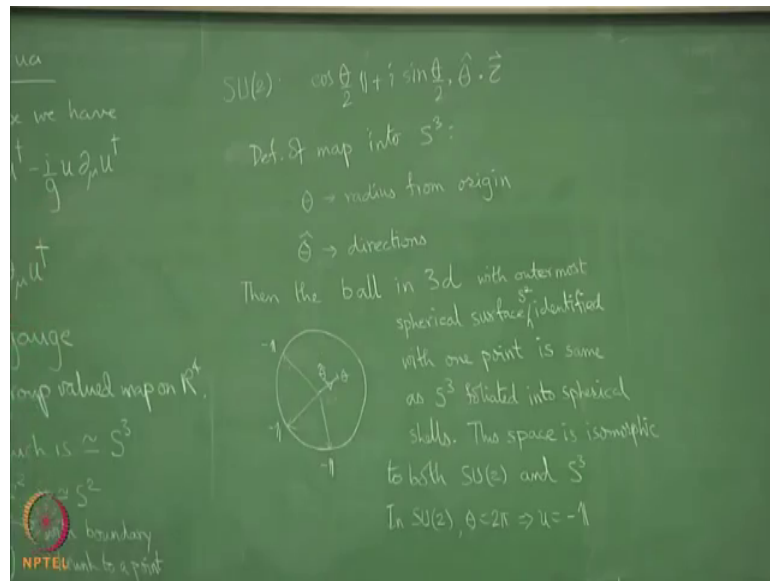 ua
we have
u† - i/g u ∂μ u†
∂μ u†
gauge
group valued map on R⁴.
which is ≃ S³
≃ S²
boundary
to a point
NPTEL
SU(2): cos θ/2 𝟙 + i sin θ/2, θ̂ · τ⃗
Def. of map into S³:
θ → radius from origin
θ̂ → directions
Then the ball in 3d with outermost
spherical surface S² identified
with one point is same
as S³ foliated into spherical
shells. This space is isomorphic
to both SU(2) and S³
In SU(2), θ = 2π ⇒ u = -𝟙
-𝟙
θ̂ θ
-𝟙
-𝟙